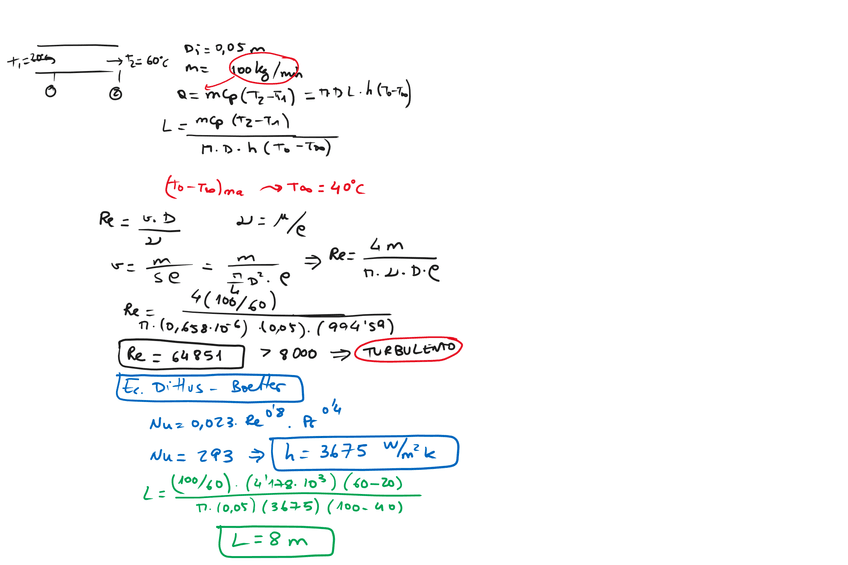 T₁=20°C → T₂=60°C
① ②
Di=0,05 m
m= 100kg/min
Q=mcp(T₂-T₁)=πDL.h(T₀-T∞)
L= mcp(T₂-T₁) / π.D.h(T₀-T∞)
(T₀-T∞)ma → T∞=40°C
Re= v.D / ν ν=μ/ρ
v= m / Sρ = m / (π/4 D².ρ) ⇒ Re= 4m / π.ν.D.ρ
Re= 4(100/60) / π.(0,658.10⁻⁶).(0,05).(994'59)
Re=64851 > 8000 ⇒ TURBULENTO
Ec. Dittus - Boelter
Nu=0,023.Re^0'8.Pr^0'4
Nu=293 ⇒ h=3675 W/m²k
L= (100/60).(4'178.10³)(60-20) / π.(0,05)(3675)(100-40)
L=8 m